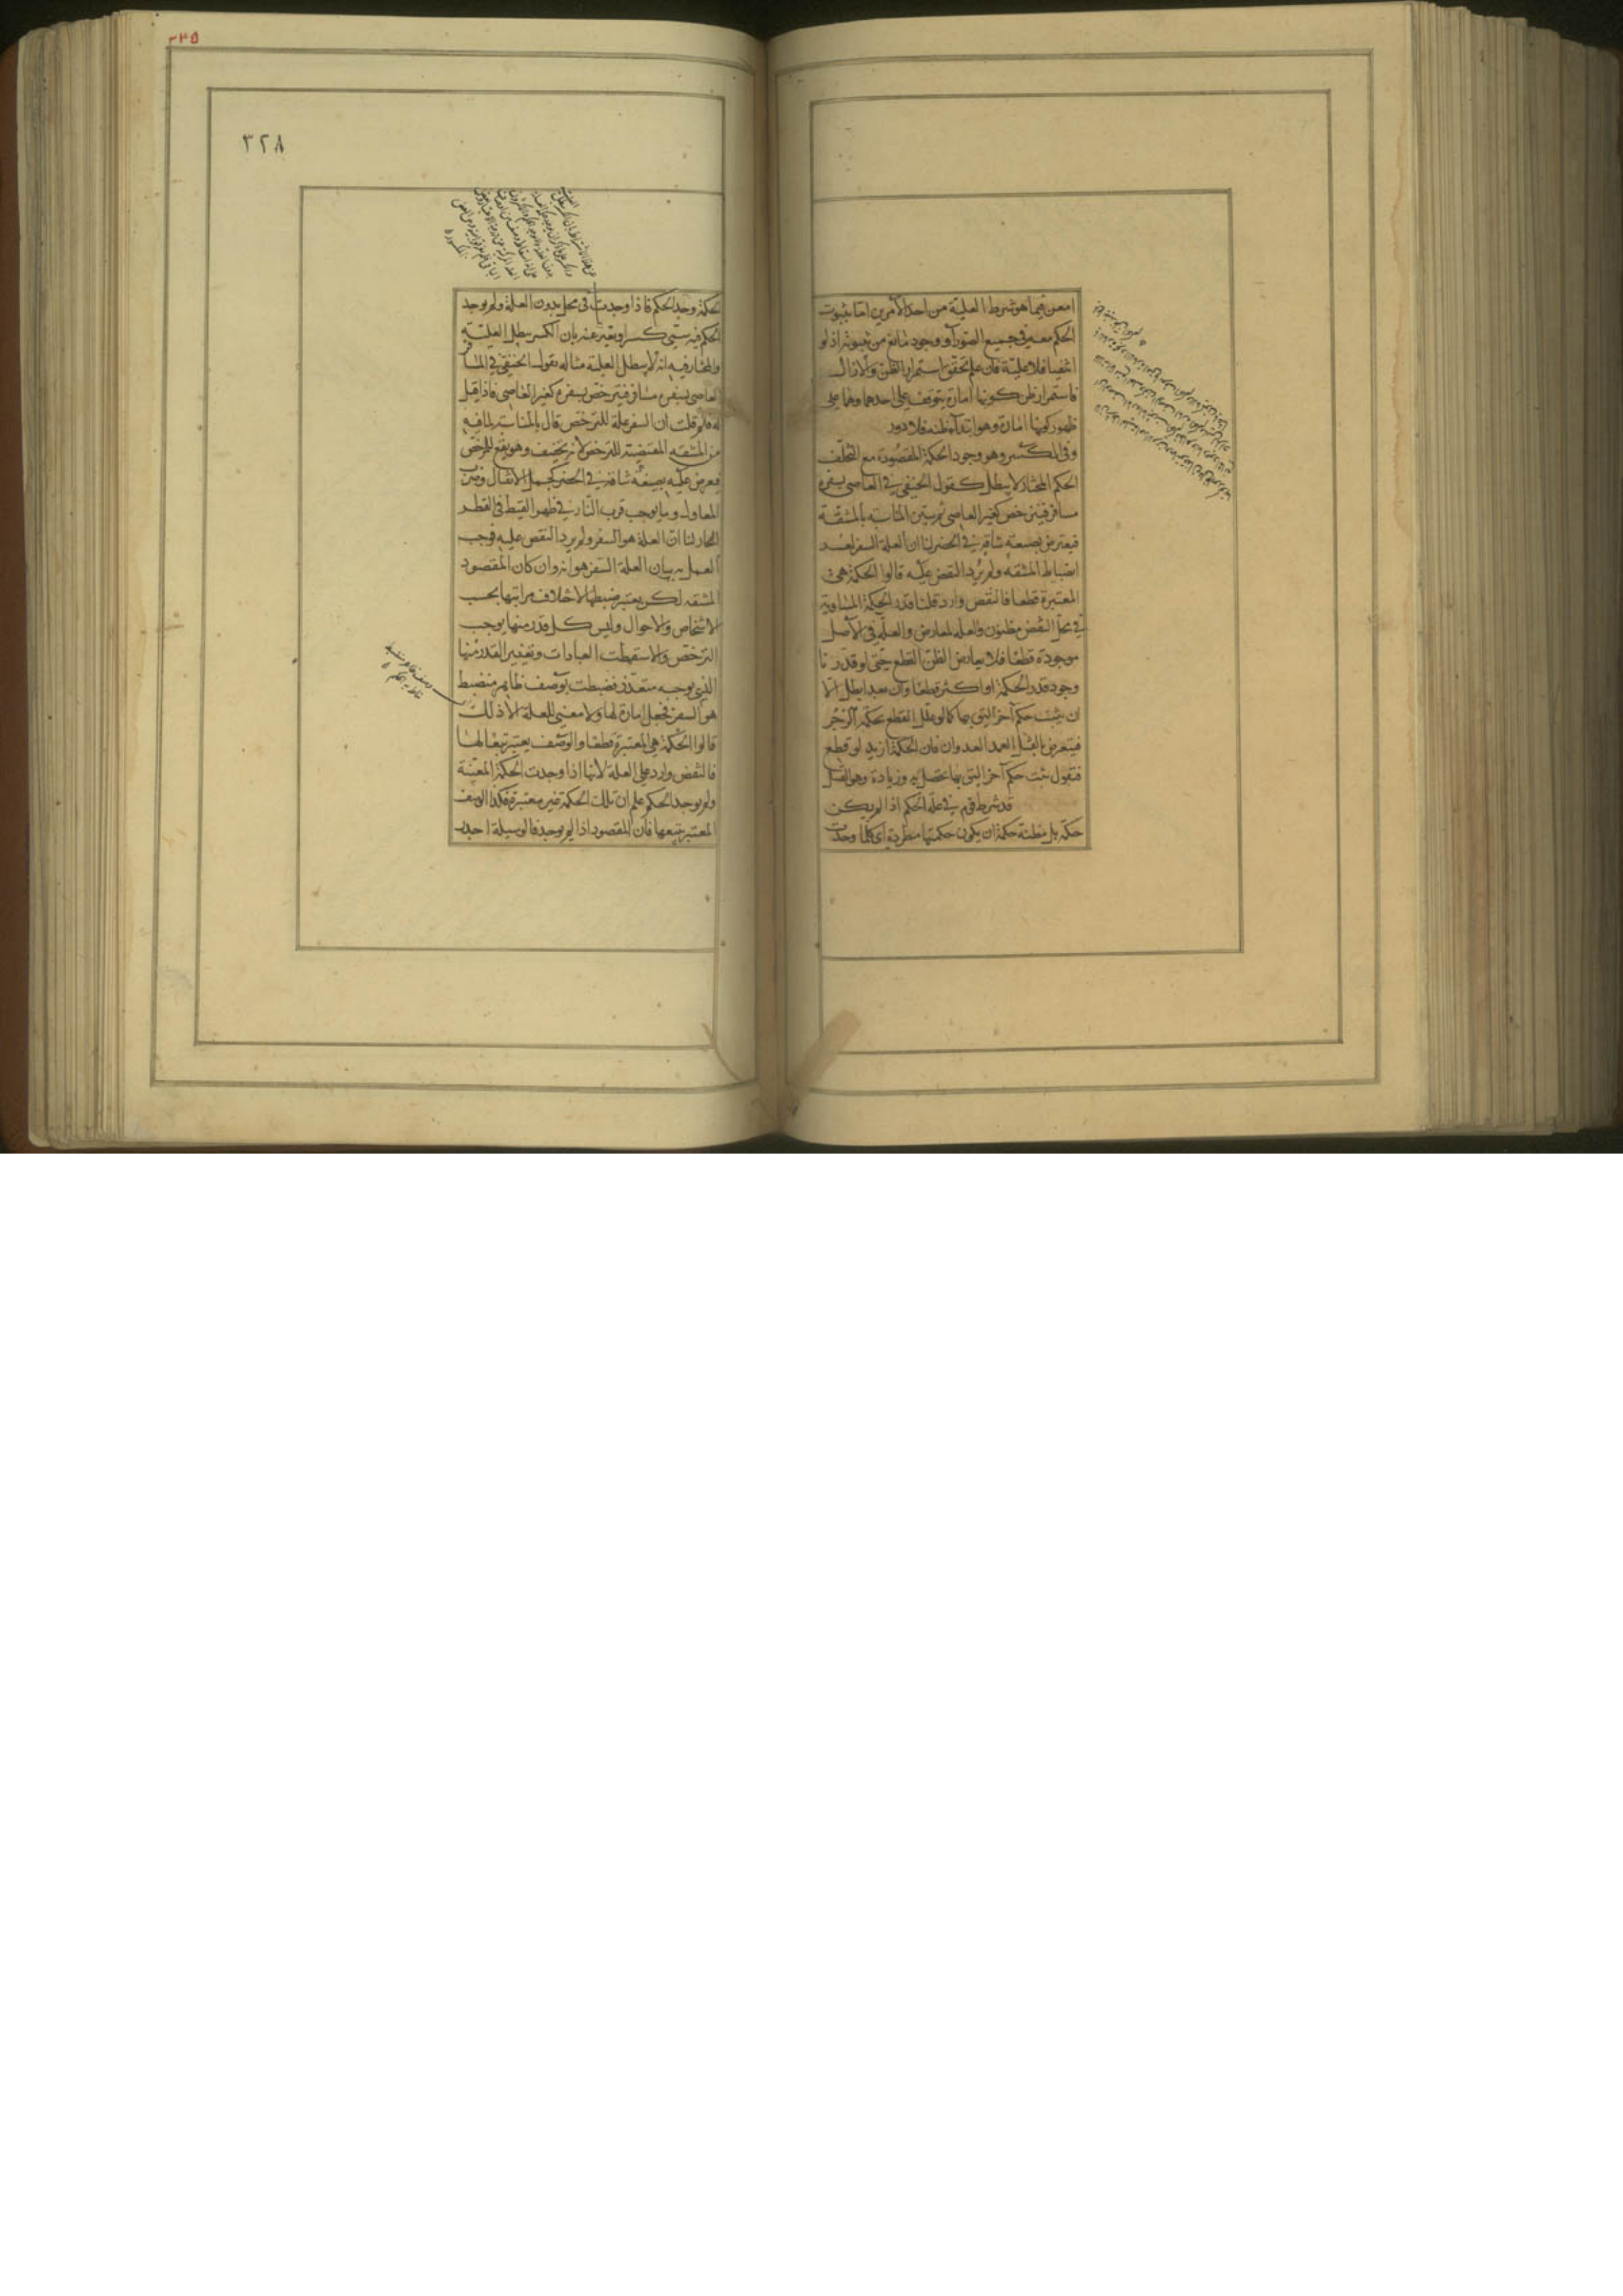 امعن فيما هو شرط العلية من احد الأمرين اما بثبوت
الحكم معه في جميع الصور او وجود مانع من ثبوته اذ لو
انتفيا فلا علية فان علم تحقق استمرار الظن والا زال
فاستمرار ظن كونها امارة يتوقف على احدهما وهما على
ظهور كونها امارة وهو ابتداء ظنه فلا دور
وفي الكسر وهو وجود الحكمة المقصودة مع التخلف
الحكم المختار لا يبطل كقول الحنفي في العاصي بسفره
مسافر فيترخص كغير العاصي ثم يبين المناسبة بالمشقة
فيعترض بصنعة شاقة في الحضر لنا ان العلة السفر لعسر
انضباط المشقة ولم يرد النقض عليه قالوا الحكمة هي
المعتبرة قطعا فالنقض وارد قلنا قدر الحكمة المساوية
في محل النقض مظنون والعله لمعارض والعلة في الأصل
موجودة قطعا فلا يعارض الظن القطع حتى لو قدرنا
وجود قدر الحكمة او اكثر قطعا وان بعد ابطل الا
ان يثبت حكم آخر اليق بها كما لو علل القطع بحكمة الزجر
فيعترض بالقتل العمد العدوان فان الحكمة ازيد لو قطع
فنقول ثبت حكم آخر اليق بها تحصل به وزيادة وهو القتل
قد شرط قوم في علة الحكم اذا لم يكن
حكمة بل مظنة حكمة ان يكون حكمتها مطردة اى كلما وجدت
٣٣٥
٣٢٨
الحكمة وجد الحكم فاذا وجدت في محل بدون العلة ولم يوجد
الحكم فيه سمي كسرا ويعبر عنه بان الكسر يبطل العلية
والمختار فيه انه لا يبطل العلية مثاله يقول الحنفي في المسافر
العاصي بسفره مسافر فيترخص بسفره كغير العاصي فاذا قيل
له فلم قلت ان السفر علة للترخص قال بالمناسبة لما فيه
من المشقة المقتضية للترخص لانه تخفيف وهو نفع للمرخص
فيعرض عليه بصنعة شاقة في الحضر كحمل الاثقال وضرب
المعاول وما يوجب قرب النار في ظهر القيظ في القطر
الحار لنا ان العلة هو السفر ولم يرد النقض عليه فوجب
العمل به بيان العلة السفر هو انه وان كان المقصود
المشقة لكن يعتبر ضبطها لاختلاف مراتبها بحسب
الاشخاص والاحوال وليس كل قدر منها يوجب
الترخص والا سقطت العبادات وتعيين القدر منها
الذي يوجبه متعذر فضبطت بوصف ظاهر منضبط
هو السفر فجعل امارة لها ولا معنى للعلة الا ذلك
قالوا الحكمة هي المعتبرة قطعا والوصف يعتبر تبعا لها
فالنقض وارد على العلة لانها اذا وجدت الحكمة المعينة
ولم يوجد الحكم علم ان تلك الحكمة غير معتبرة فكذا الوصف
المعتبر بتبعها فان المقصود اذا لم يوجد فالوسيلة اجدر